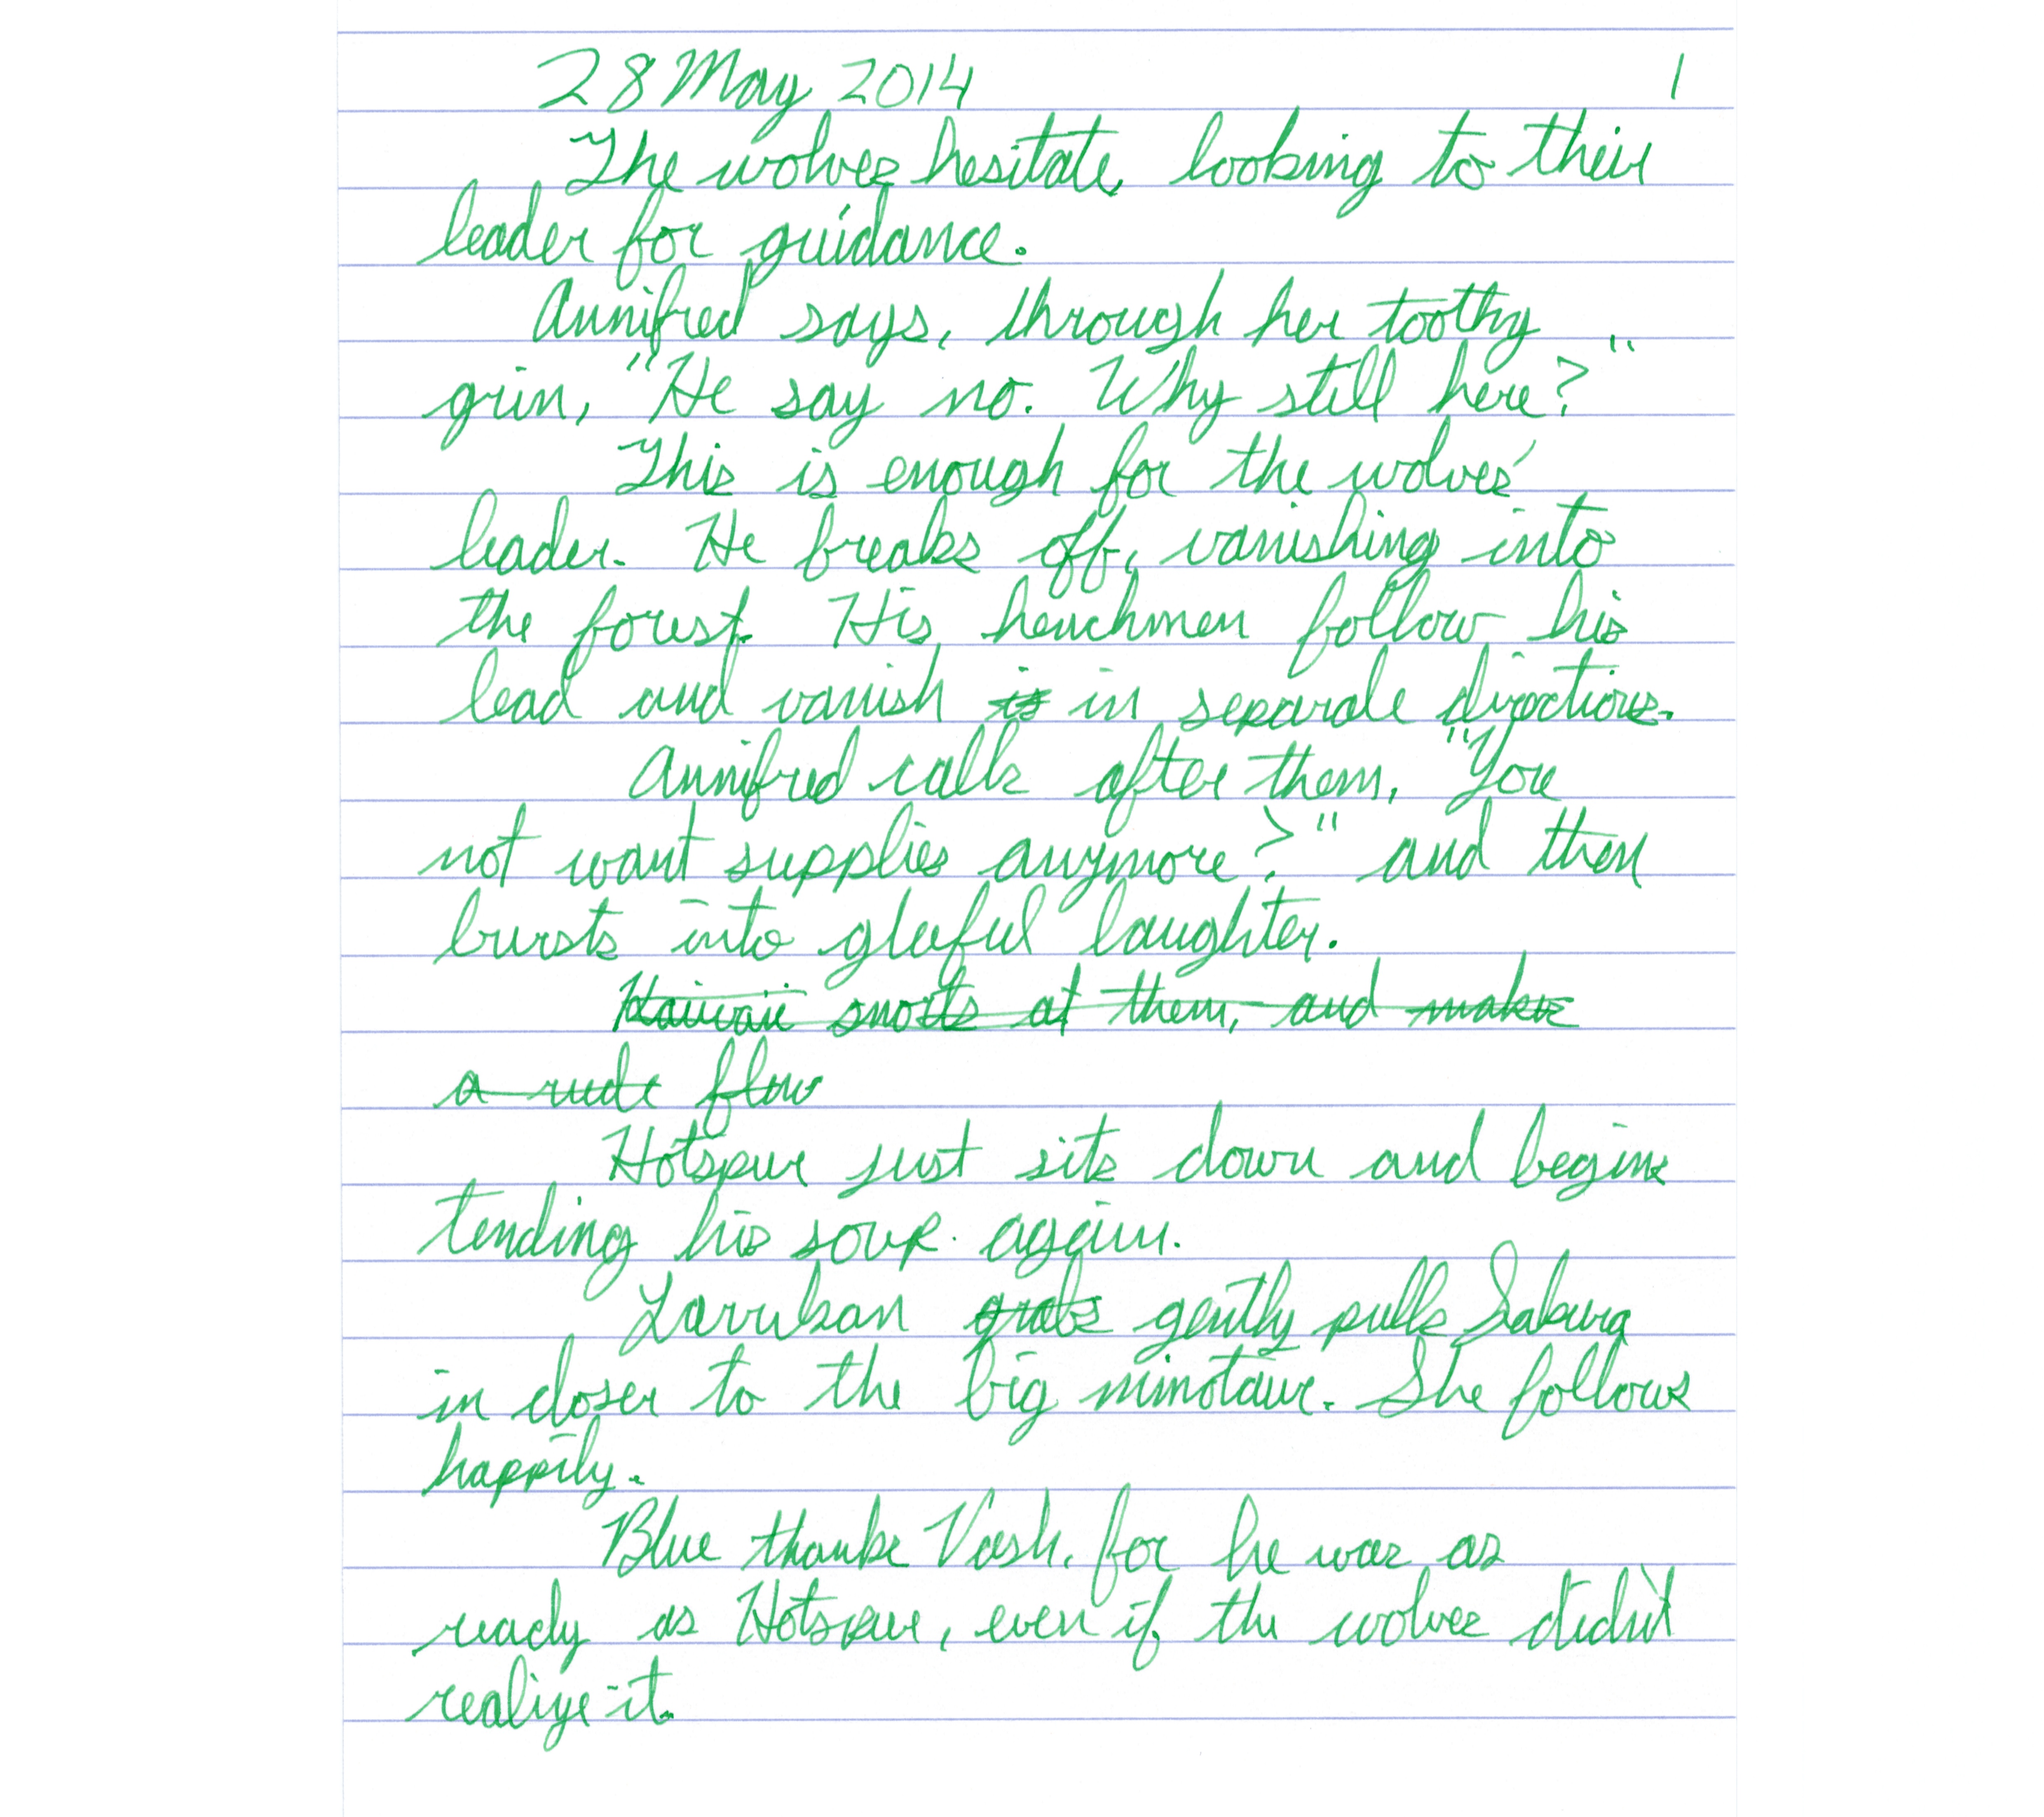 28 May 2014 1
The wolves hesitate, looking to their
leader for guidance.
Annifred says, through her toothy
grin, "He say no. Why still here?"
This is enough for the wolves'
leader. He breaks off, vanishing into
the forest. His henchmen follow his
lead and vanish is in separate directions.
Annifred calls after them, "You
not want supplies anymore?" and then
bursts into gleeful laughter.
Hawaii snorts at them, and makes
a rude flow
Hotspur just sits down and begins
tending his soup again.
Larulsan grabs gently pulls Sakura
in closer to the big minotaur. She follows
happily.
Blue thanks Vash, for he was as
ready as Hotspur, even if the wolves didn't
realize it.